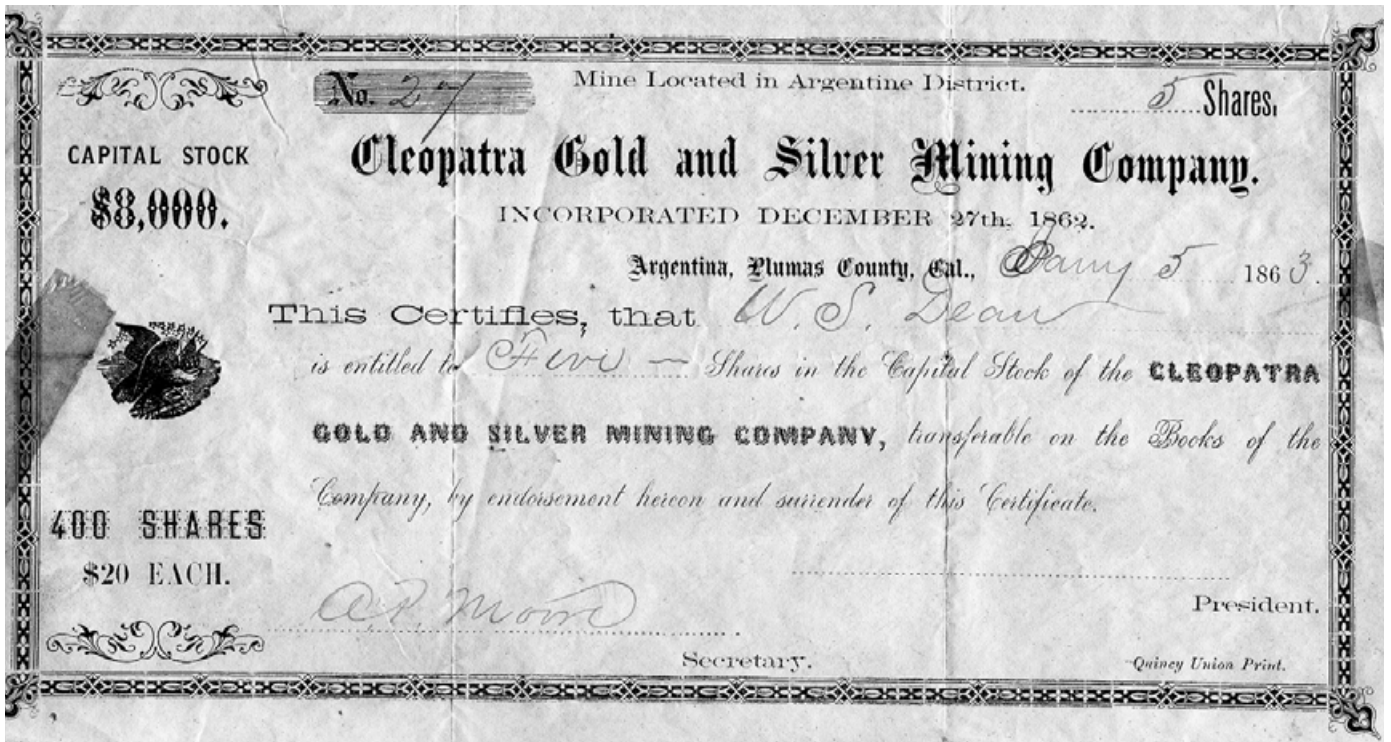 No. 27
Mine Located in Argentine District.
5 Shares.
CAPITAL STOCK
$8,000.
Cleopatra Gold and Silver Mining Company.
INCORPORATED DECEMBER 27th, 1862.
Argentina, Plumas County, Cal., Jany 5 1863.
This Certifies, that W. S. Dean
is entitled to Five — Shares in the Capital Stock of the CLEOPATRA
GOLD AND SILVER MINING COMPANY, transferable on the Books of the
Company, by endorsement hereon and surrender of this Certificate.
400 SHARES
$20 EACH.
A. P.
President.
Secretary.
Quincy Union Print.